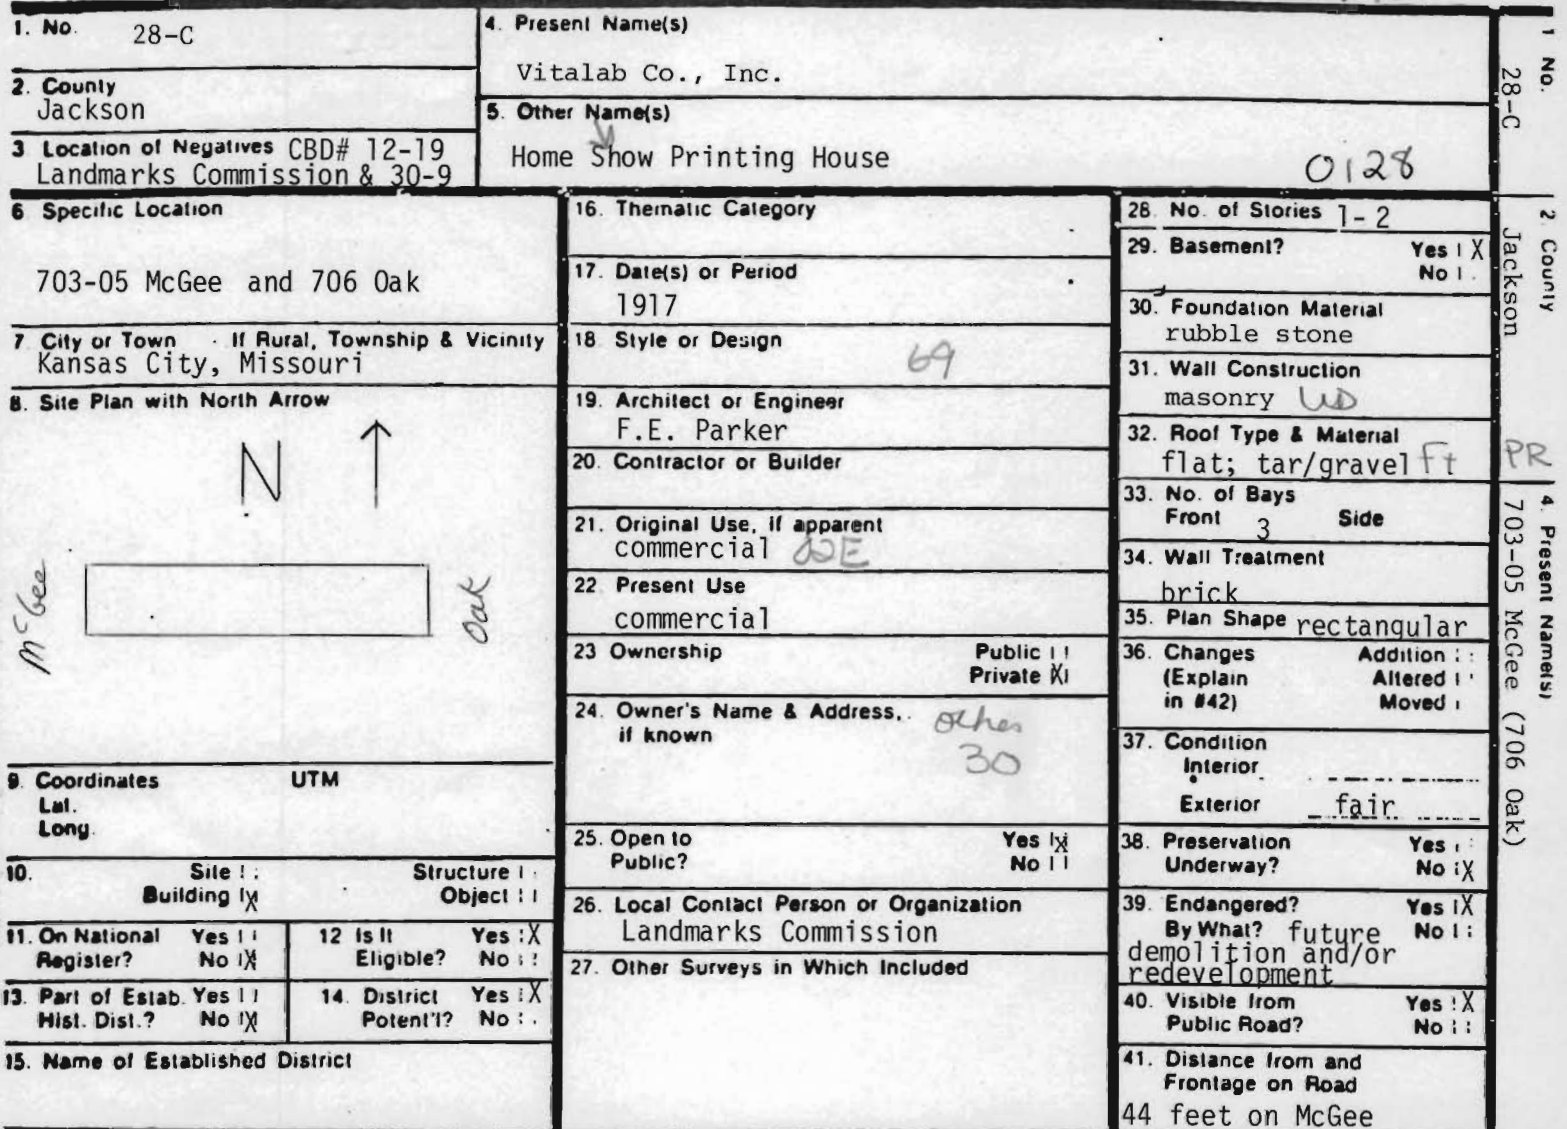 1. No. 28-C
2. County
Jackson
3 Location of Negatives CBD# 12-19
Landmarks Commission & 30-9
4. Present Name(s)
Vitalab Co., Inc.
5. Other Name(s)
Home Show Printing House
0128
6 Specific Location
703-05 McGee and 706 Oak
7 City or Town If Rural, Township & Vicinity
Kansas City, Missouri
8. Site Plan with North Arrow
N
McGee
Oak
9. Coordinates UTM
Lat.
Long.
10. Site Structure
Building X Object
11. On National Yes
Register? No X
12 Is It Yes X
Eligible? No
13. Part of Estab. Yes
Hist. Dist.? No X
14. District Yes X
Potent'l? No
15. Name of Established District
16. Thematic Category
17. Date(s) or Period
1917
18. Style or Design
69
19. Architect or Engineer
F.E. Parker
20. Contractor or Builder
21. Original Use, if apparent
commercial 02E
22. Present Use
commercial
23 Ownership Public
Private X
24. Owner's Name & Address,
if known
other
30
25. Open to Yes X
Public? No
26. Local Contact Person or Organization
Landmarks Commission
27. Other Surveys in Which Included
28. No. of Stories 1-2
29. Basement? Yes X
No
30. Foundation Material
rubble stone
31. Wall Construction
masonry UD
32. Roof Type & Material
flat; tar/gravel Ft
33. No. of Bays
Front 3 Side
34. Wall Treatment
brick
35. Plan Shape rectangular
36. Changes Addition
(Explain Altered
in #42) Moved
37. Condition
Interior
Exterior fair
38. Preservation Yes
Underway? No X
39. Endangered? Yes X
By What? future No
demolition and/or
redevelopment
40. Visible from Yes X
Public Road? No
41. Distance from and
Frontage on Road
44 feet on McGee
1 No.
28-C
2 County
Jackson
PR
4. Present Name(s)
703-05 McGee (706 Oak)